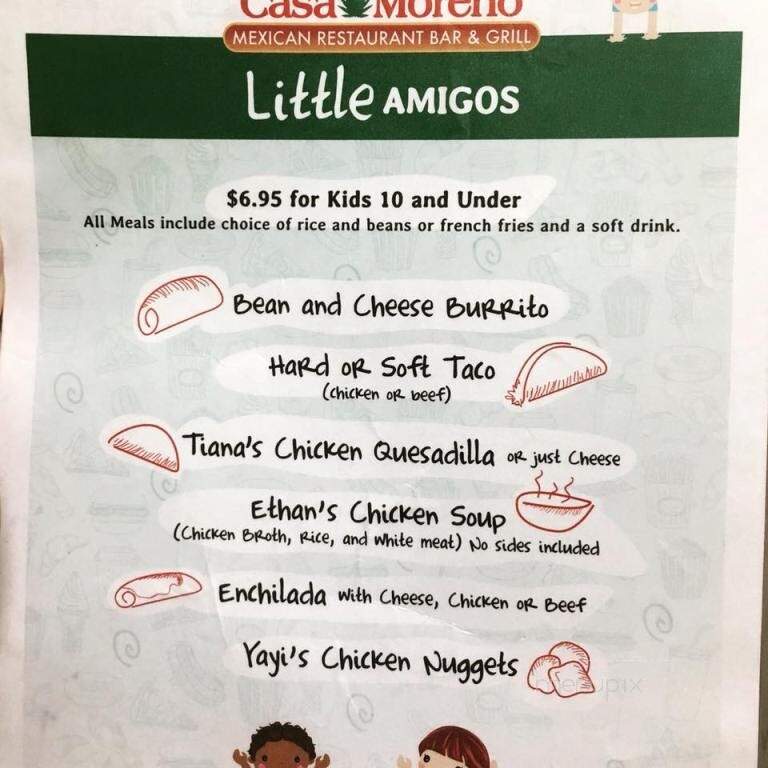 Casa Moreno
MEXICAN RESTAURANT BAR & GRILL
Little AMIGOS
$6.95 for Kids 10 and Under
All Meals include choice of rice and beans or french fries and a soft drink.
Bean and Cheese Burrito
Hard or Soft Taco
(chicken or beef)
Tiana's Chicken Quesadilla or just Cheese
Ethan's Chicken Soup
(Chicken Broth, Rice, and White meat) No sides included
Enchilada with Cheese, Chicken or Beef
Yayi's Chicken Nuggets
menupix